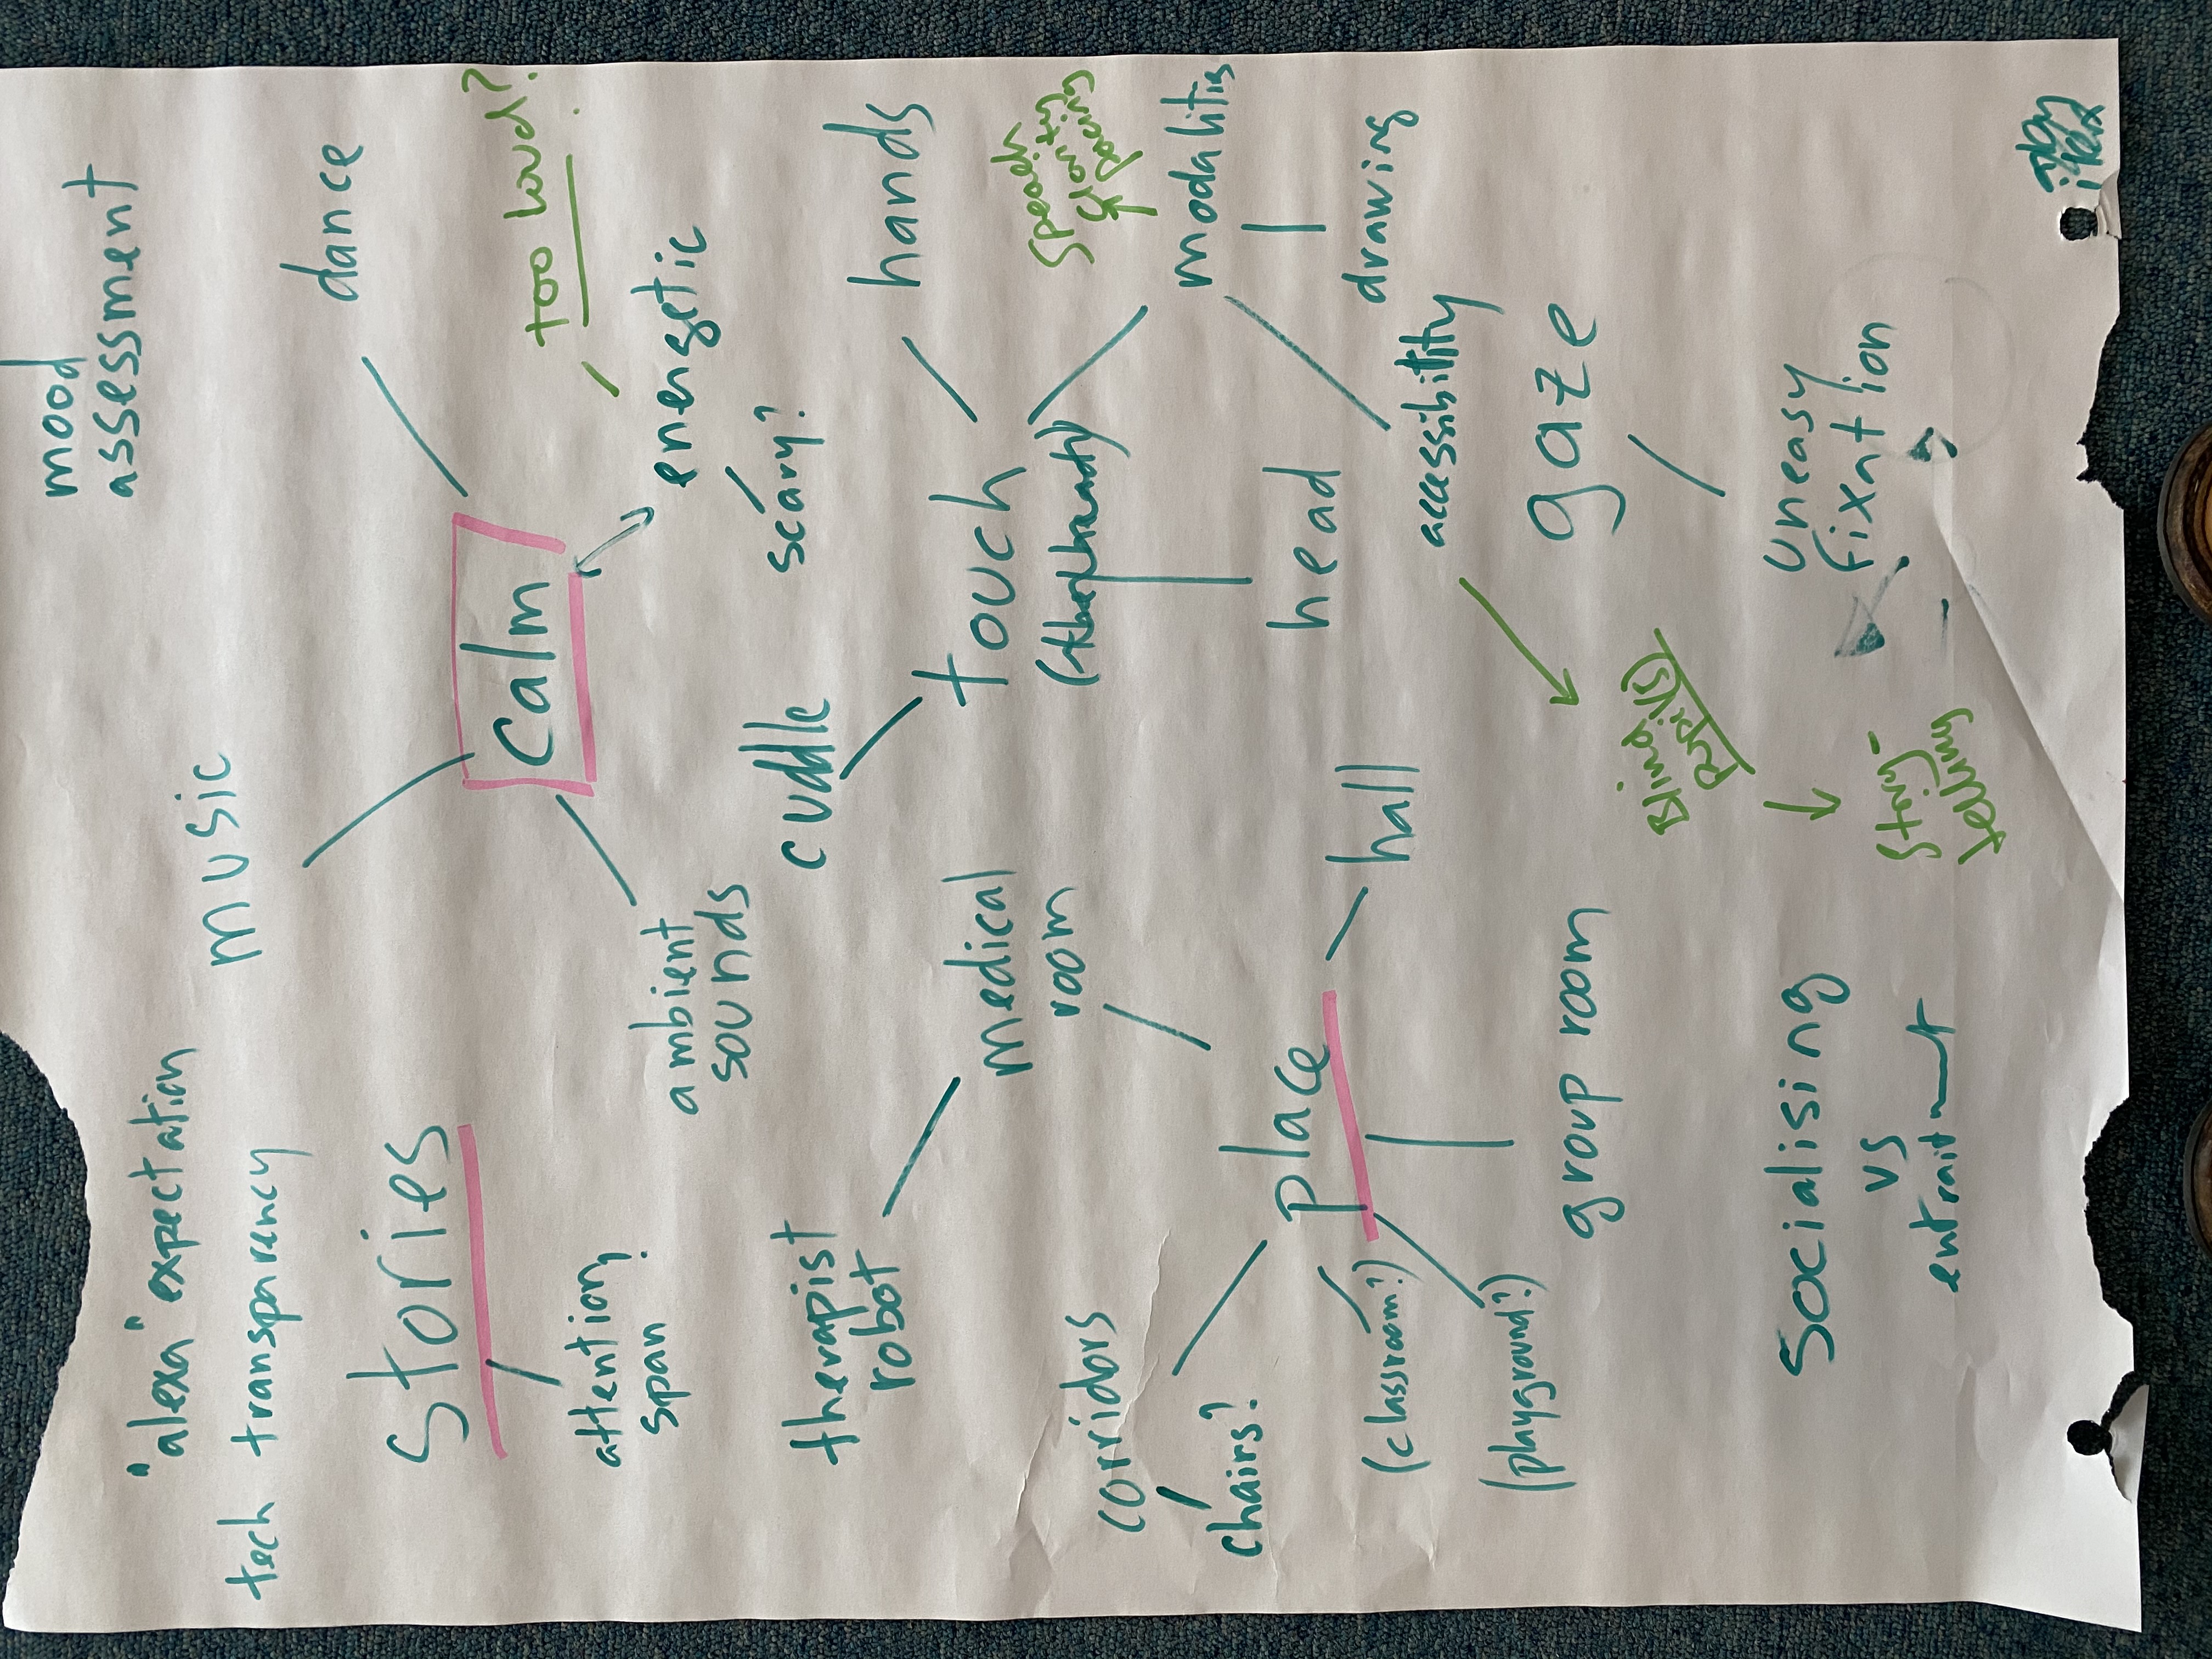 mood
assessment
"alexa" expectation
tech transparency
music
dance
stories
calm
too loud?
attention
span ?
ambient
sounds
energetic
scary?
cuddle
therapist
robot
hands
medical
room
touch
speach
clarity
pacing
corridors
chairs?
modalities
place
head
hall
drawing
(classroom?)
accessibility
(playground?)
group room
gaze
Blind
pupil(s)
Socialising
vs
uneasy
fixation
Story-
telling